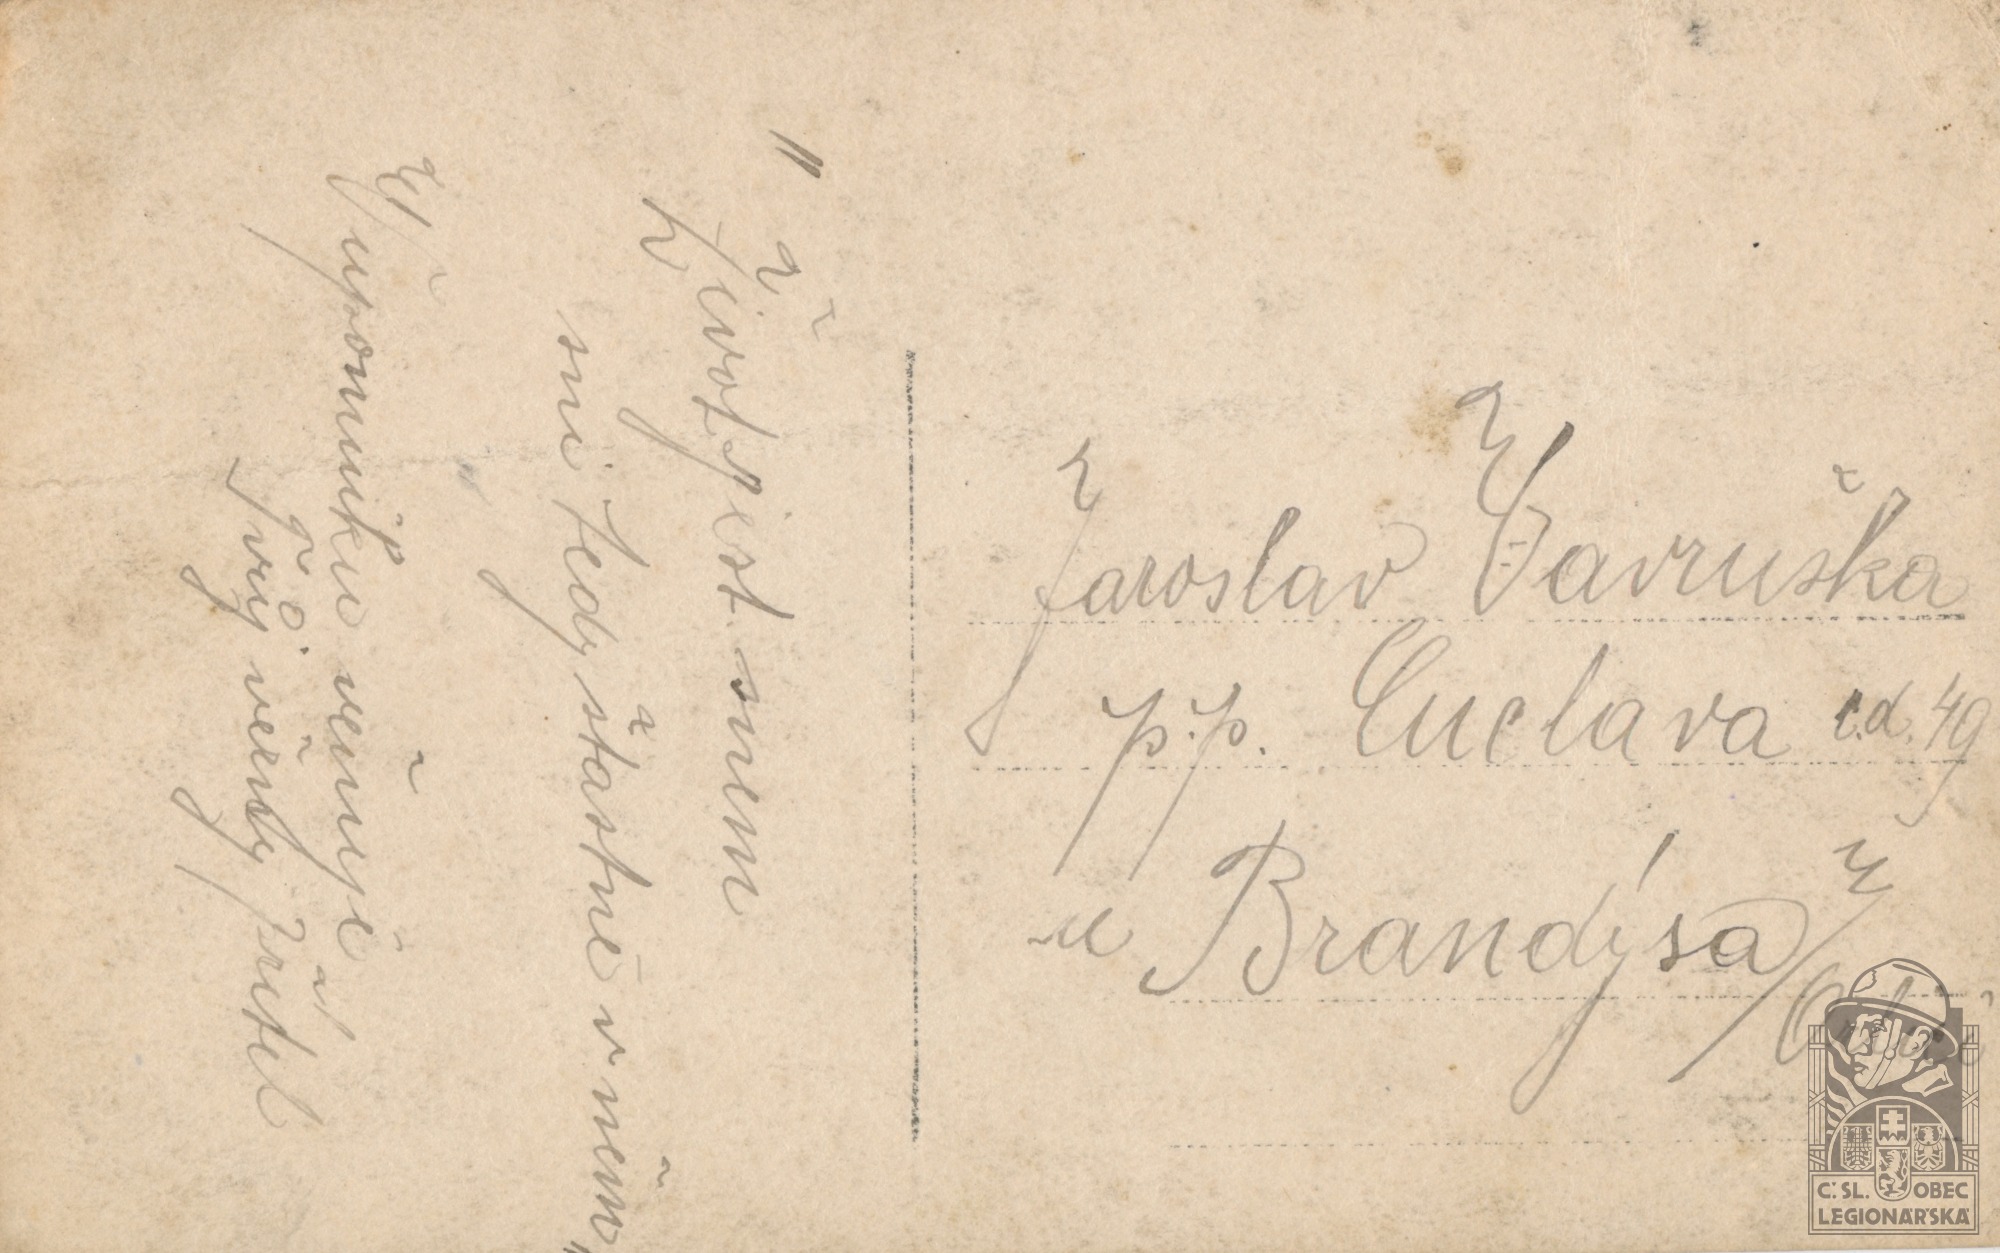 "Život jest snem
sni tedy šťastně v něm"
K upomínku věnuje
Tvůj věrný přítel
Jaroslav Vavruška
p.p. Cuclava č.d. 49
u Brandýsa n/
Č. SL. OBEC
LEGIONÁŘSKÁ